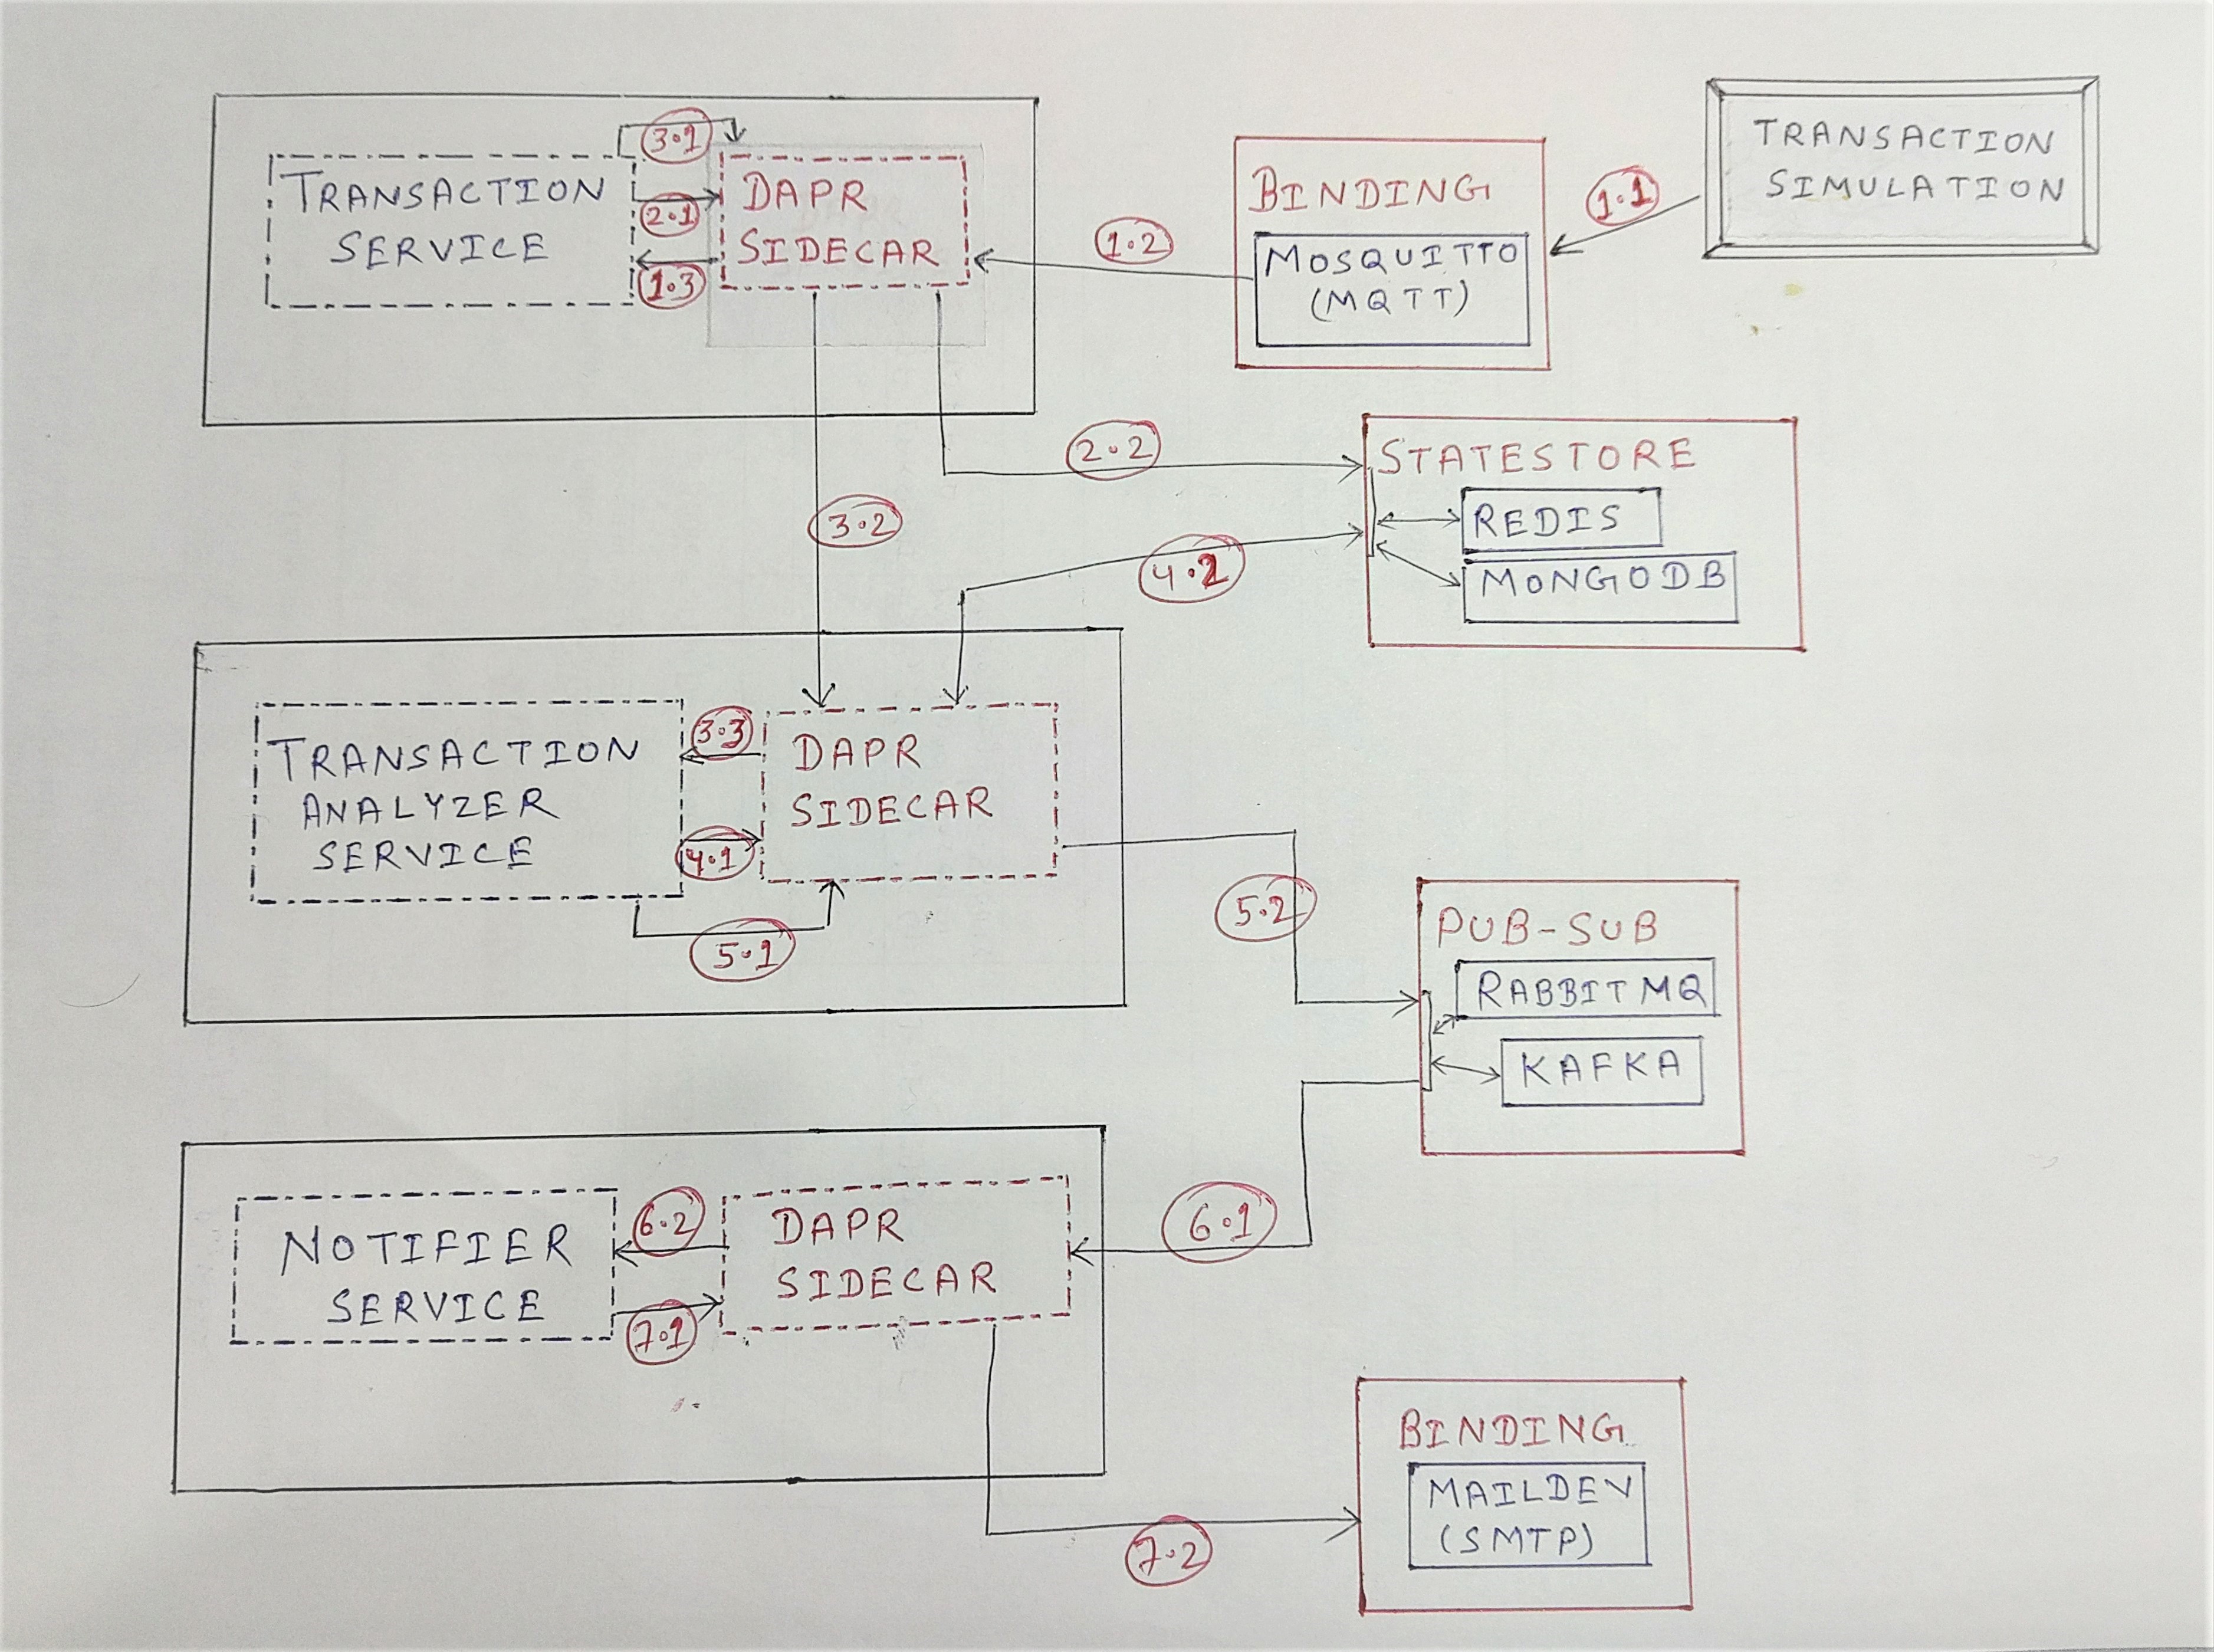 3.1
TRANSACTION
SERVICE
2.1
1.3
DAPR
SIDECAR
1.2
BINDING
MOSQUITTO
(MQTT)
1.1
TRANSACTION
SIMULATION
2.2
3.2
4.2
STATESTORE
REDIS
MONGODB
TRANSACTION
ANALYZER
SERVICE
3.3
4.1
5.1
DAPR
SIDECAR
5.2
PUB-SUB
RABBITMQ
KAFKA
NOTIFIER
SERVICE
6.2
7.1
DAPR
SIDECAR
6.1
7.2
BINDING
MAILDEV
(SMTP)